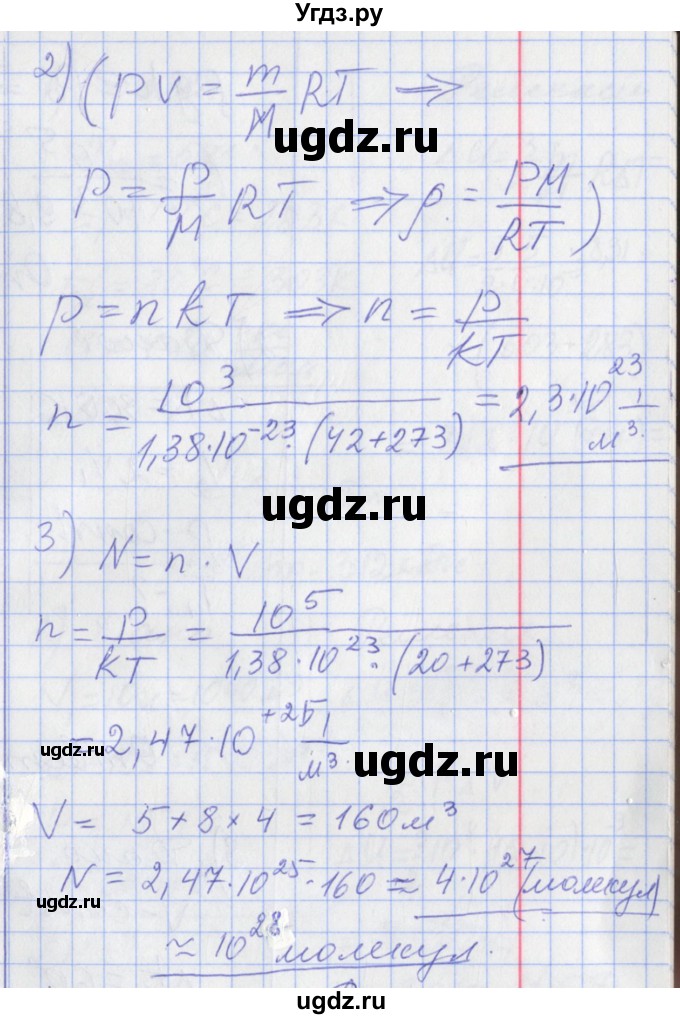 Угдз.ру
2) (PV = m/M RT ⟹
ugdz.ru
P = ρ/M RT ⟹ ρ = PM/RT)
p = n k T ⟹ n = P/kT
n = 10³/1,38·10⁻²³·(42+273) = 2,3·10²³ 1/м³.
ugdz.ru
3) N = n · V
n = P/kT = 10⁵/1,38·10²³·(20+273)
ugdz.ru
= 2,47·10⁺²⁵ 1/м³.
ugdz.ru
ugdz.ru
V = 5+8×4 = 160 м³
N = 2,47·10²⁵·160 ≈ 4·10²⁷ (молекул)
ugdz.ru
ugdz.ru
≈ 10²⁸ молекул.
ugdz.ru